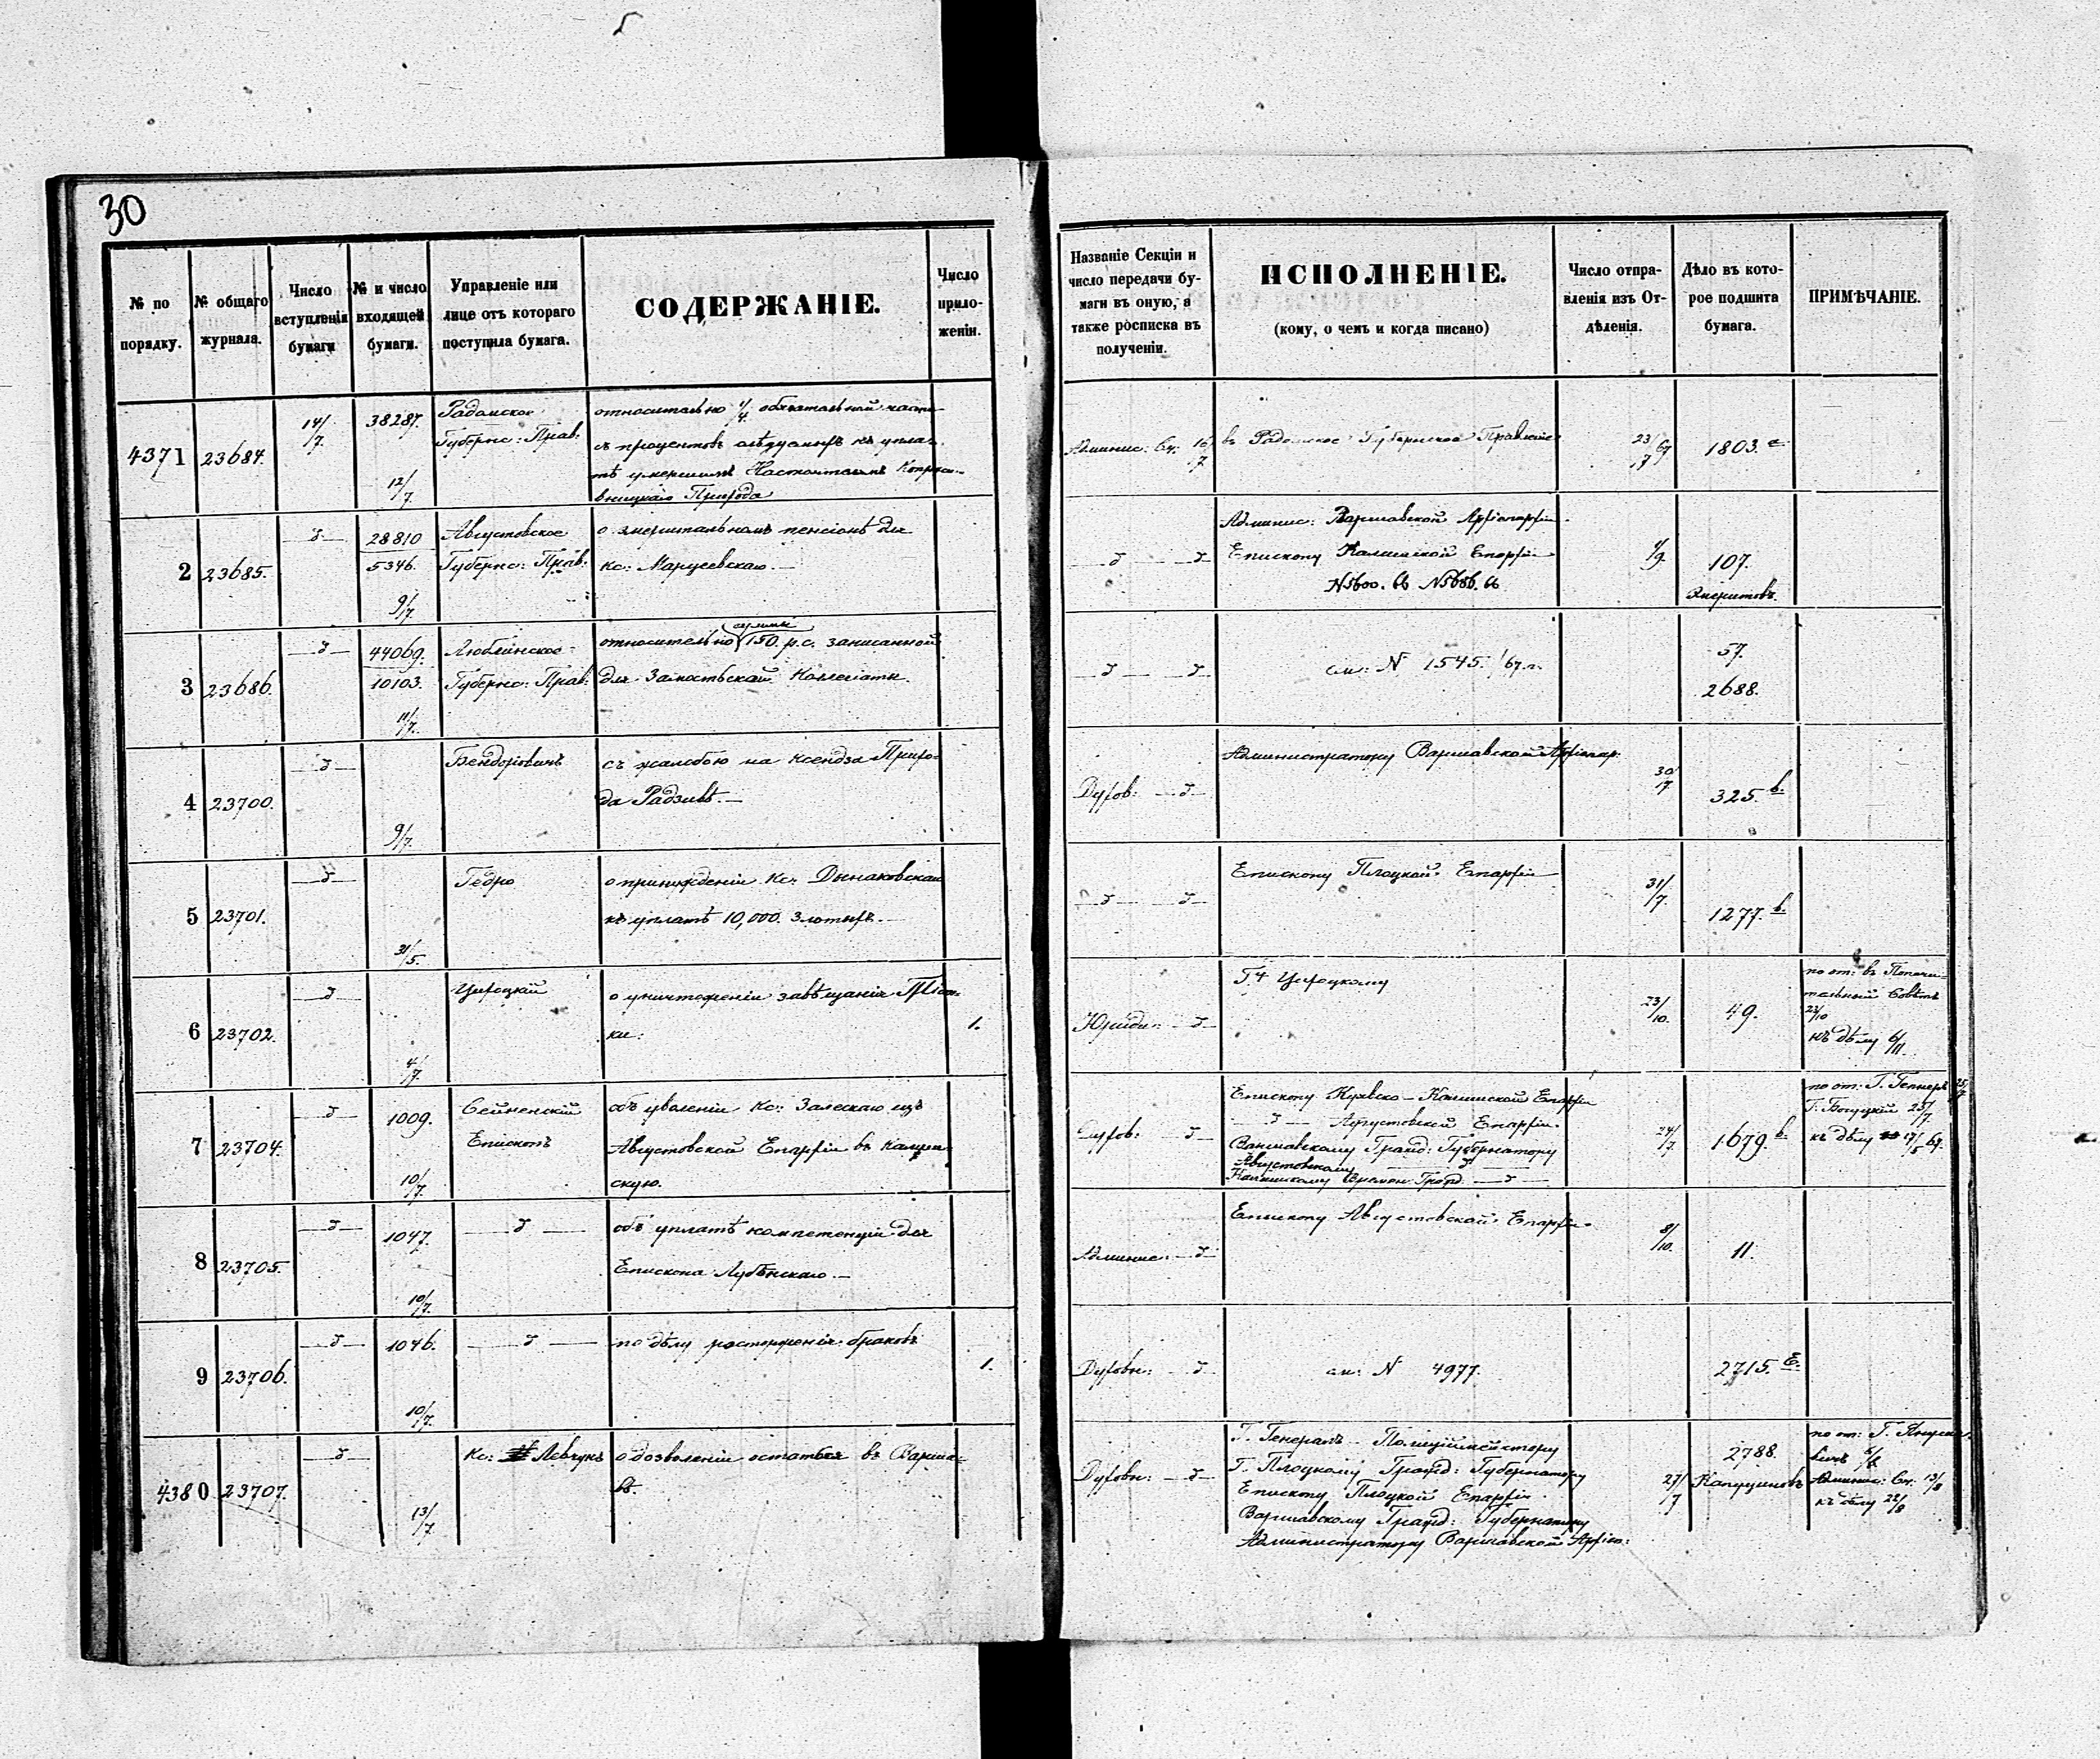 30
№ по порядку.
№ общаго журнала.
Число вступленія бумаги
№ и число входящей бумаги.
Управленіе или лице отъ котораго поступила бумага.
СОДЕРЖАНІЕ.
Число приложеній.
Названіе Секціи и число передачи бумаги въ оную, а также росписка въ полученіи.
ИСПОЛНЕНІЕ.
(кому, о чемъ и когда писано)
Число отправленія изъ Отдѣленія.
Дѣло въ которое подшита бумага.
ПРИМѢЧАНІЕ.
4371 23684. 14/7. 38287. 12/7.
Радомское
Губернс: Прав:
относительно 1/4 обязательной части
съ процентовъ слѣдующихъ къ упла-
тѣ умершимъ Настоятелемъ
Прихода
Админис: Сек: 16/7
въ Радомское Губернское Правленіе
23/7 67
1803. а
2 23685. 28810 5346. 9/7
Августовское
Губернс: Прав:
о эмеритальномъ пенсіонѣ для
кс: Марусевскаго.
Админис: Варшавской Архіепархіи.
Епископу Калишской Епархіи
N 5600. 66 N 5686. 66
4/9.
107.
Эмеритовъ.
3 23686. 44069. 10103. 11/7.
Люблинское
Губернс: Прав:
суммы
относительно 150. р. с. записанной
для Замостьской Коллегіаты.
см: N 1545. /67 г.
57.
2688.
4 23700. 9/7.
Бендоровичъ
съ жалобою на Ксендза Прихо-
да Радзивѣ.
Духов:
Администратору Варшавской Архіепар.
30/7
325. b.
5 23701. 31/5.
Гедро
о принужденіи кс: Дынаковскаго
къ уплатѣ 10,000. злотыхъ.
Епископу Плоцкой Епархіи
31/7.
1277. b.
6 23702. 4/7.
Цихоцкій
о уничтоженіи завѣщанія
ки.
1.
Юриди:
Г-у Цихоцкому
23/10.
49.
по от: въ Попечи-
тельный Совѣтъ
23/10
къ дѣлу 6/11.
7 23704. 1009. 10/7.
Сейненскій
Епископъ
объ уволеніи кс: Залескаго изъ
Августовской Епархіи въ Калиш-
скую.
Духов:
Епископу Куявско-Калишской Епархіи
Августовской Епархіи.
Варшавскому Гражд: Губернатору
Августовскому
Калишскому Времен. Гражд.
24/7.
1679. b.
по от: Г. Геппнеръ 25/7
Г. Богуцкій 25/7
къ дѣлу 17/5 67.
8 23705. 1047. 10/7.
объ уплатѣ компетенціи для
Епископа Лубѣнскаго.
Админис:
Епископу Августовской Епархіи.
8/10.
11.
9 23706. 1046. 10/7.
по дѣлу расторженія браковъ
1.
Духовн:
см: N 4977.
2715. E.
4380 23707. 13/7.
Кс: Левчукъ
о дозволеніи остаться въ Варша-
вѣ.
Духовн:
Г. Генералъ-Полиціймейстеру
Г. Плоцкому Гражд: Губернатору
Епископу Плоцкой Епархіи
Варшавскому Гражд: Губернатору
Администратору Варшавской Архіеп:
27/7
2788.
Капуциновъ
по от: Г.
6/8
Админис: Сек. 13/8
къ дѣлу 22/8